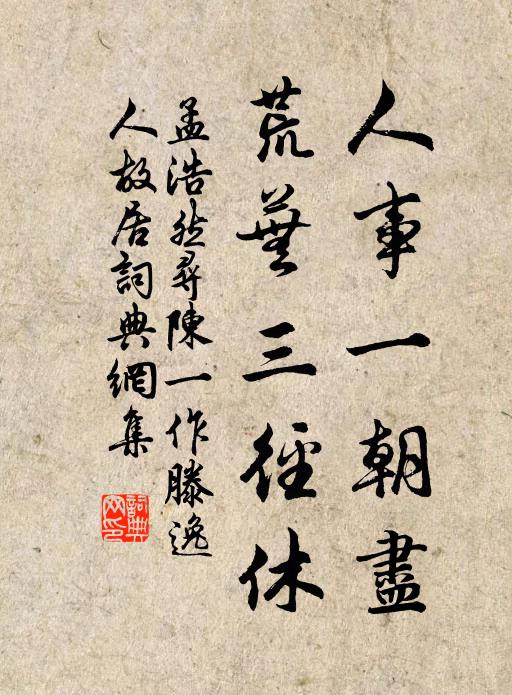 人事一朝盡
荒蕪三徑休
孟浩然尋陳一作滕逸
人故居詞典網集
詞典
网印